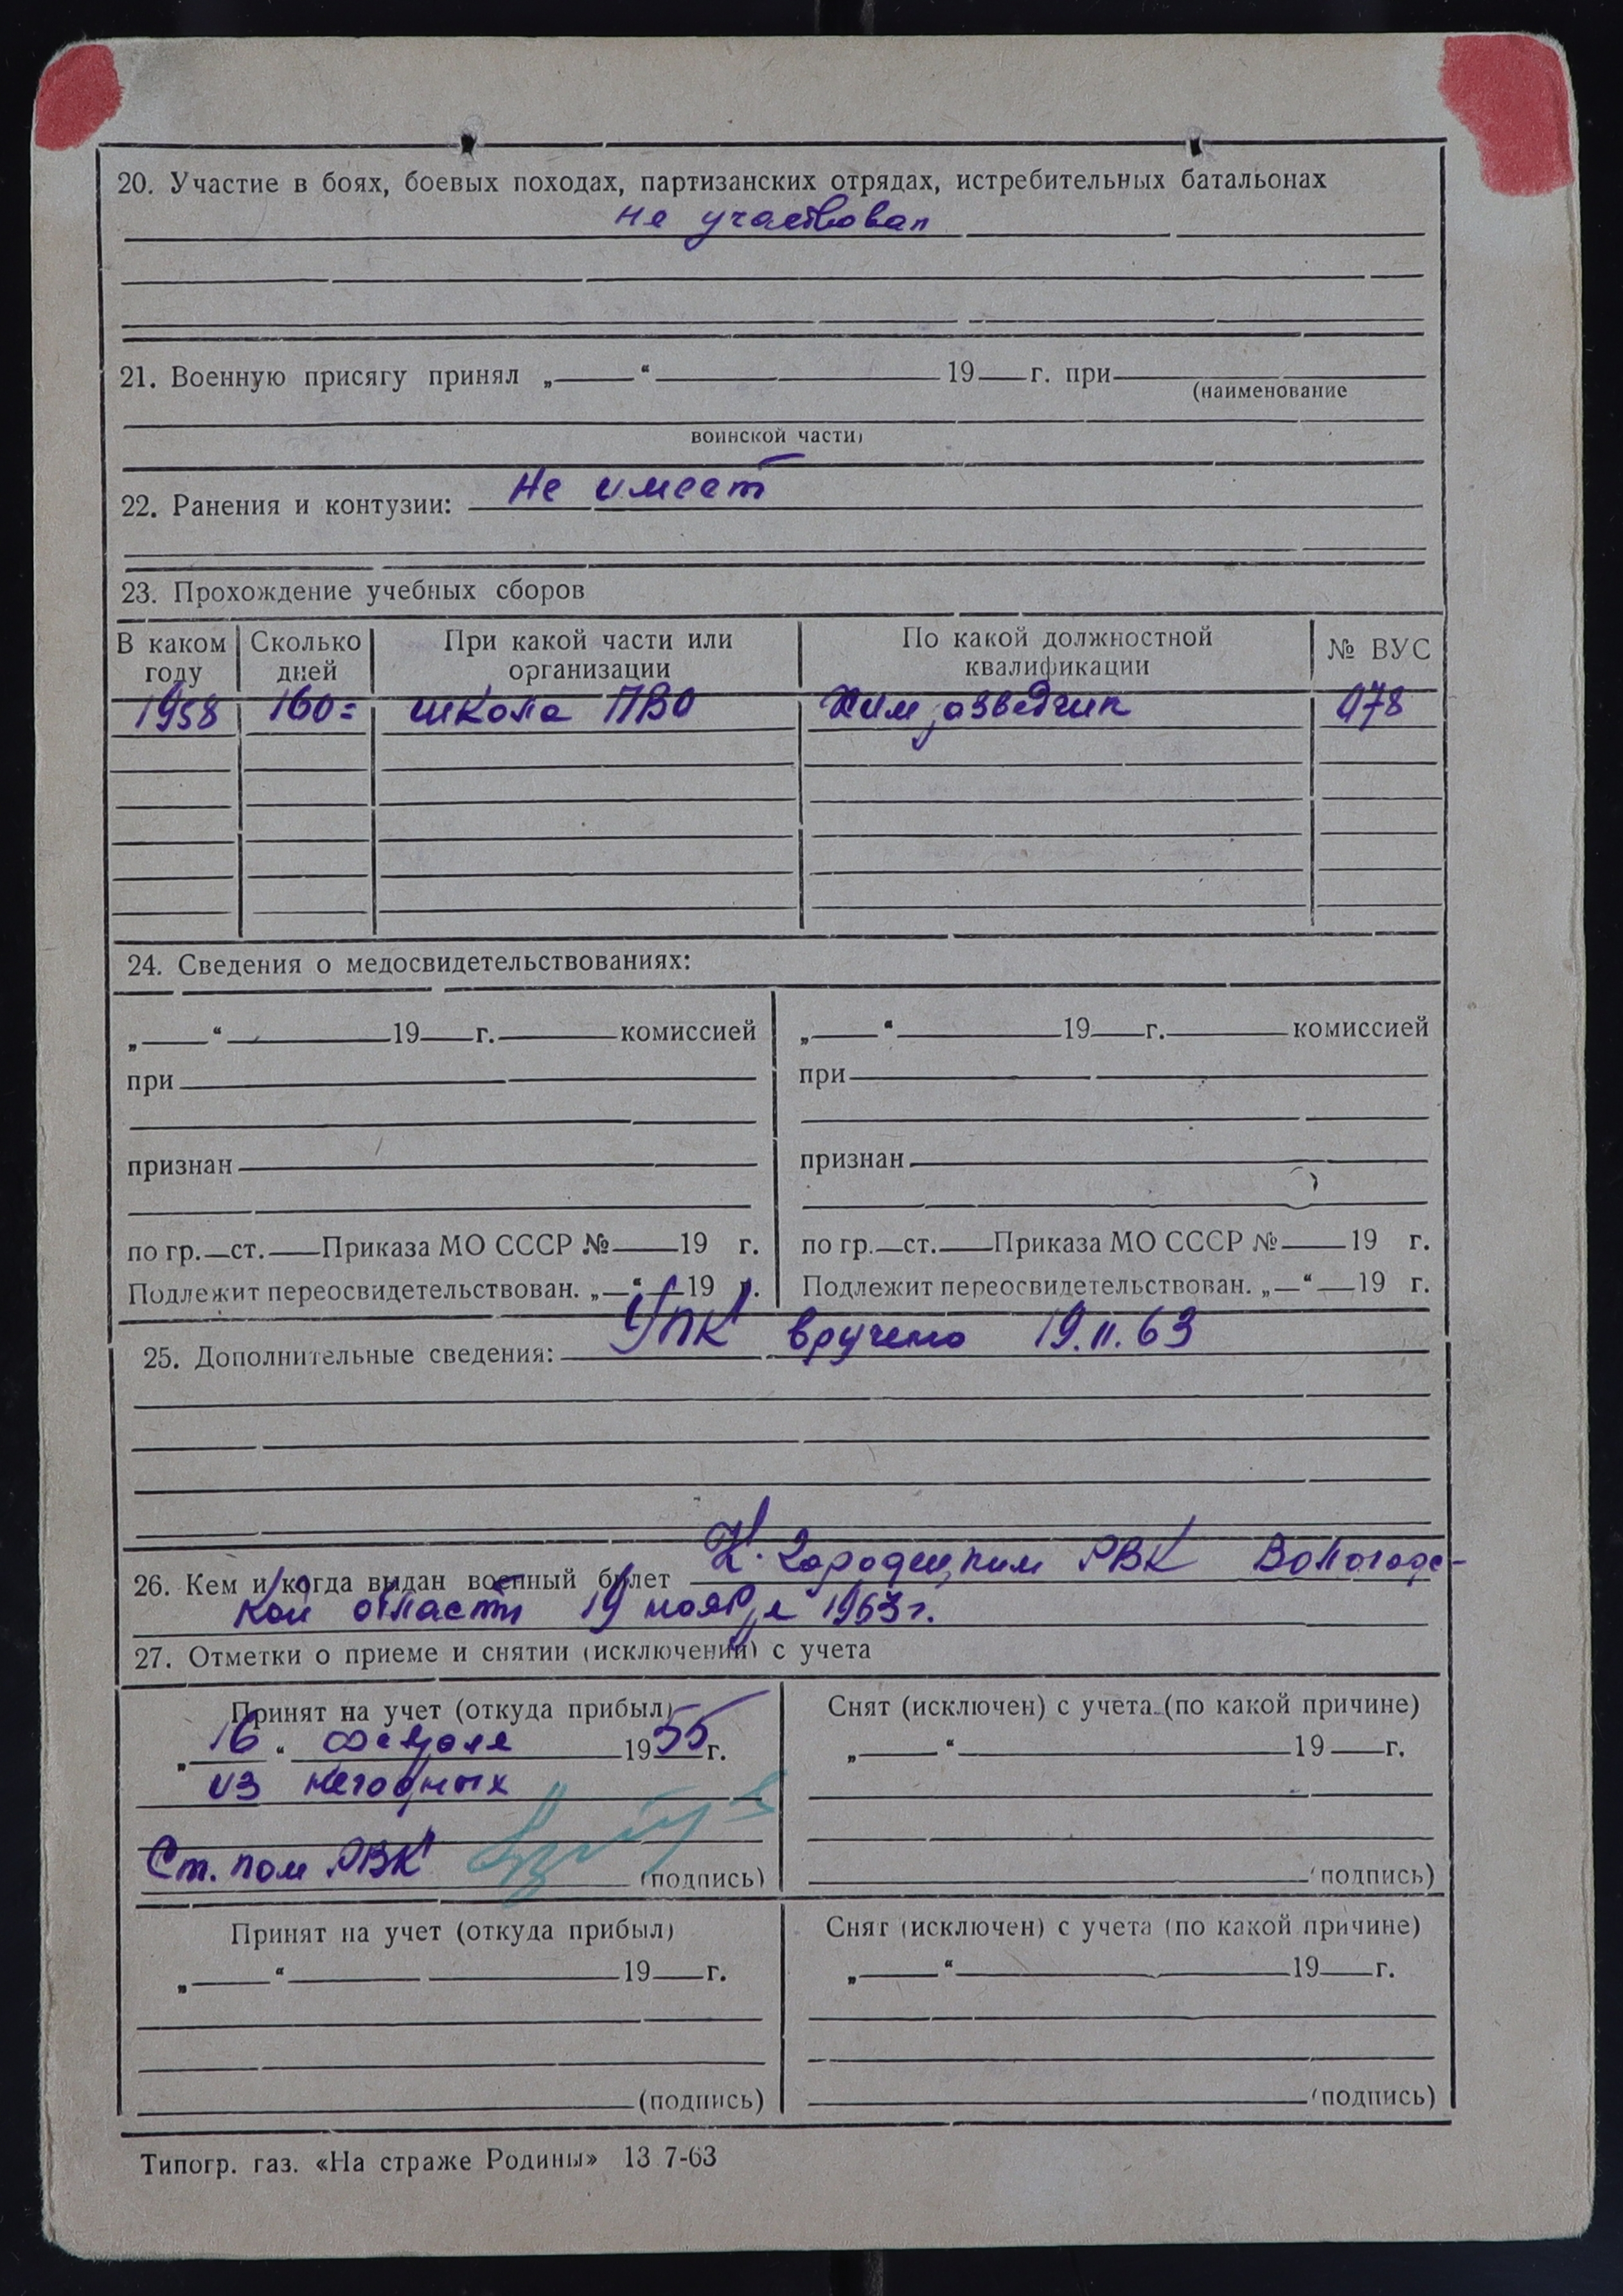 20. Участие в боях, боевых походах, партизанских отрядах, истребительных батальонах
не участвовал
21. Военную присягу принял „ “ 19 г. при
(наименование
воинской части)
22. Ранения и контузии: Не имеет
23. Прохождение учебных сборов
В каком году Сколько дней При какой части или организации По какой должностной квалификации № ВУС
1958 160= школа ПВО Химразведчик 078
24. Сведения о медосвидетельствованиях:
„ “ 19 г. комиссией
при
признан
по гр. ст. Приказа МО СССР № 19 г.
Подлежит переосвидетельствован. „ “ 19 г.
„ “ 19 г. комиссией
при
признан
по гр. ст. Приказа МО СССР № 19 г.
Подлежит переосвидетельствован. „ “ 19 г.
25. Дополнительные сведения: УПК вручено 19.11.63
26. Кем и когда выдан военный билет К. Городецким РВК Вологодс-
кой области 19 ноября 1963 г.
27. Отметки о приеме и снятии (исключении) с учета
Принят на учет (откуда прибыл)
„16“ февраля 1955 г.
из негодных
Ст. пом РВК (подпись)
Снят (исключен) с учета (по какой причине)
„ “ 19 г.
(подпись)
Принят на учет (откуда прибыл)
„ “ 19 г.
(подпись)
Снят (исключен) с учета (по какой причине)
„ “ 19 г.
(подпись)
Типогр. газ. «На страже Родины» 13 7-63